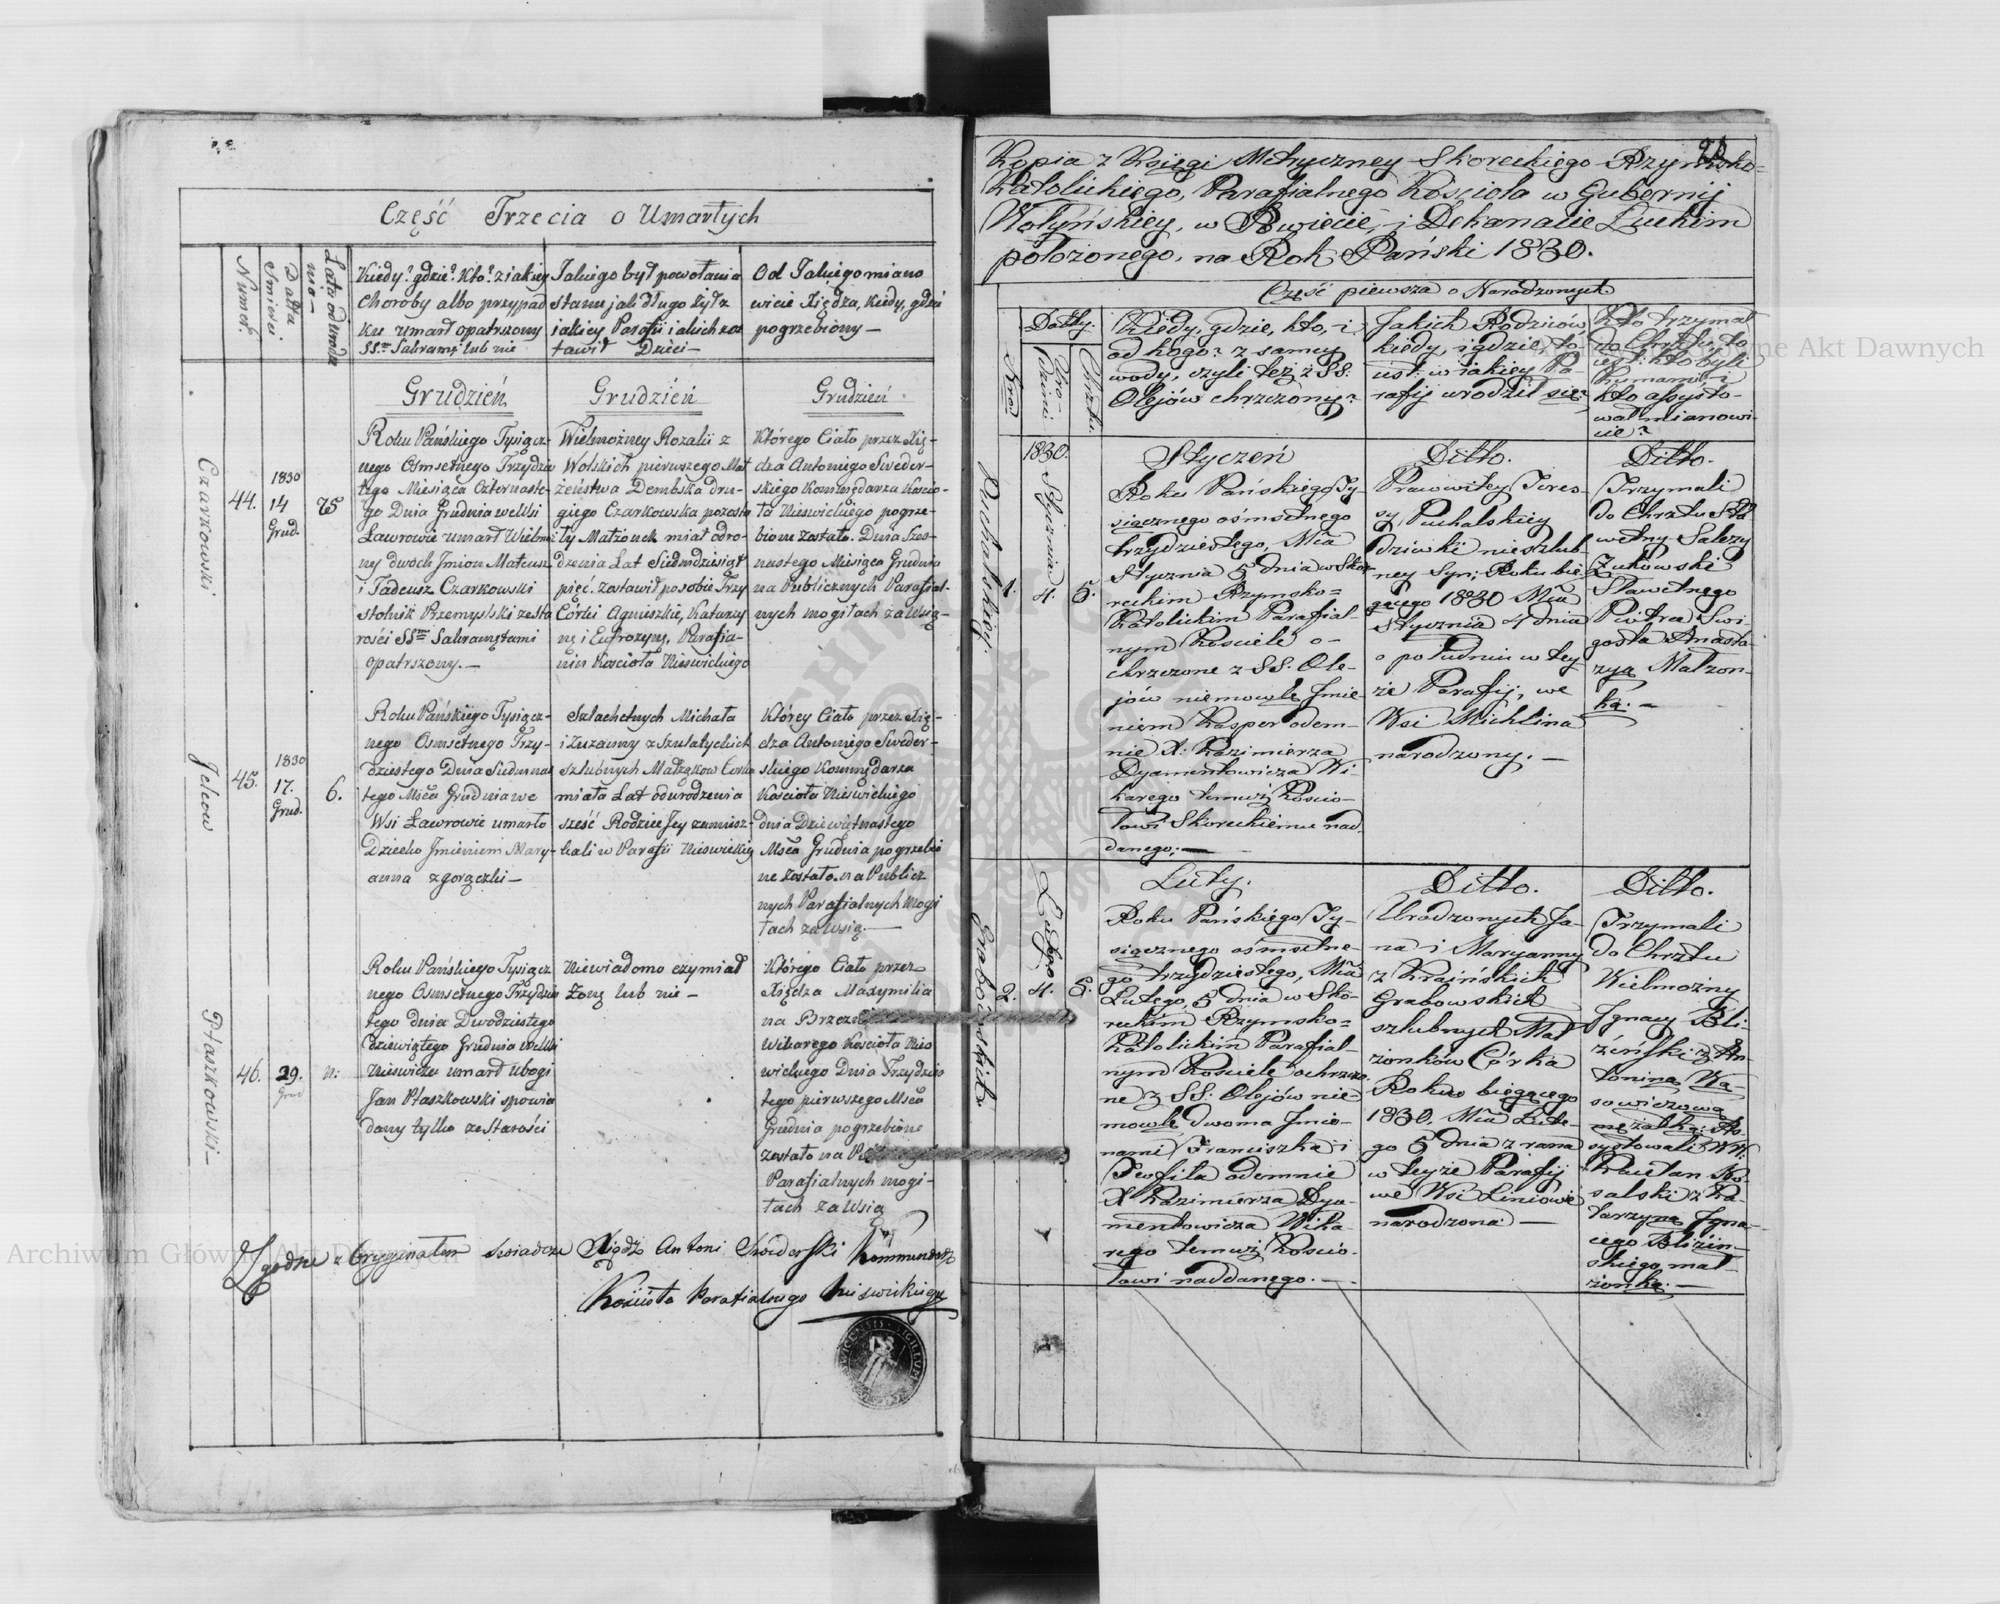 Część Trzecia o Umarłych
Numer.
Datta Śmierci.
Lata od urodzenia
Kiedy? gdzie? Kto? z jakiey
Choroby albo przypad
ku umarł opatrzony
SS. Sakramę: lub nie
Jakiego był powołania
stanu jak długo żył z
iakiey Parafii i iakich zos
tawił Dzieci
Od Jakiego miano
wicie Xiędza, Kiedy, gdzie
pogrzebiony
Grudzień
Grudzień
Grudzień
Czarkowski
44.
1830
14
Grud.
75
Roku Pańskiego Tysiącz-
nego Ośmsetnego Trzydzies
tego Miesiąca Czternaste-
go Dnia Grudnia we Wsi
Ławrowie umarł Wielmo
ny dwóch Jmion Mateusz
i Tadeusz Czarkowski
stolnik Przemyslski ze sta
rości SS. Sakramętami
opatrzony.
Wielmożney Rozalii z
Wolskich pierwszego Mał
żeństwa Dembska dru-
giego Czarkowska pozosta
ły Małżonek miał od ro-
dzenia Lat Siedmdziesiąt
pięć. zostawił po sobie Trzy
Córki Agnieszkę, Katarzy
nę i Eufrozynę, Parafia-
nin Kościoła Nieswickiego
Którego Ciało przez Xię-
dza Antoniego Sweder-
skiego Kommędarza Koscio-
ła Nieswickiego pogrze-
bione zostało. Dnia Szes-
nastego Miesiąca Grudnia
na Publicznych Parafial-
nych mogiłach za Wsią
Jelcow
45.
1830
17.
Grud.
6.
Roku Pańskiego Tysiącz-
nego Osmsetnego Trzy-
dziestego Dnia Siedmnas
tego Msca Grudnia we
Wsi Ławrowie umarło
Dziecko Jmieniem Mary-
anna z gorączki
Szlachetnych Michała
i Zuzanny z Szulatyckich
szlubnych Małżąkow Corka
miała Lat od urodzenia
sześć Rodzice Jey zamiesz-
kali w Parafii Nieswickiey
Którey Ciało przez Xię-
dza Antoniego Sweder-
skiego Kommędarza
Kościoła Nieswickiego
dnia Dziewiętnastego
Msca Grudnia pogrzebio
ne zostało na Publicz
nych Parafialnych Mogi
łach za Wsią.
Ptaszkowski
46.
29.
Grud
n:
Roku Pańskiego Tysiącz
nego Osmsetnego Trzydzies
tego dnia Dwodziestego
dziewiątego Grudnia we Wsi
Nieswiczu umarł Ubogi
Jan Ptaszkowski spowia
dany tylko ze Starości
Niewiadomo czy miał
Żonę lub nie
Którego Ciało przez
Xiędza Maxymilia
na Brzez
Wikarego Kościoła Nies
wickiego Dnia Trzydzies
tego pierwszego Msca
Grudnia pogrzebione
zostało na
Parafialnych mogi-
łach za Wsią
Zgodne z Oryginałem swiadcze Xiądz Antoni Swiderski Kommendarz
Kościoła Parafialnego Nieswickiego
Kopia z Księgi Metryczney Skoreckiego Rzymsko=
Katolickiego, Parafialnego Kościoła w Gubernij
Wołyńskiey, w Powiecie, i Dekanacie Łuckim
położonego, na Rok Pański 1830.
Część piewsza o Narodzonych
Nro
Datty.
Urodzin:
Chrztu.
Kiedy, gdzie, kto, i
od kogo? z samey
wody, czyli też z SS:
Olejów chrzczony?
Jakich Rodziców
kiedy, i gdzie, to
iest: w iakiey Pa-
rafij urodził się?
Kto trzymał
do Chrztu, to
iest: kto byli
Kumami, i
kto assysto-
wał mianowi-
cie?
1830.
Styczeń
Ditto.
Ditto.
Puchalskiey
1.
Stycznia
4.
5.
Roku Pańskiego Ty-
siącznego ośmsetnego
trzydziestego, Mca
Stycznia 5 dnia w Sko-
reckim Rzymsko=
Katolickim Parafial-
nym Kościele o-
chrzczone z SS. Ole-
jów niemowle Jmie-
niem Kasper odem-
nie X: Kazimierza
Dyamentowicza Wi-
karego temuż Kościo-
łowi Skoreckiemu nad-
danego;
Prawowitey Teres-
sy Puchalskiey
dziewki nieszlub-
ney Syn; Roku bie-
gącego 1830 Mca
Stycznia 4 dnia
o południu w tey
że Parafij, we
Wsi Michlina
narodzony.
Trzymali
do Chrztu Sła
wetny Salezy
Żukowski
Sławetnego
Piotra Swi-
gosta Anasta-
zyą Małzon-
ką.
Luty.
Ditto.
Ditto.
Grabowskich
2.
Lutego
4.
5.
Roku Pańskiego Ty-
siącznego ośmsetne-
go trzydziestego, Mca
Lutego, 5 dnia w Sko-
reckim Rzymsko=
Katolickim Parafial-
nym Kościele ochrzczo-
ne z SS: Olejów nie
mowle dwoma Jmio-
nami Franciszka i
Teofila odemnie
X Kazimierza Dya-
mentowicza Wika-
rego temuż Kościo-
łowi naddanego.
Urodzonych Ja-
na i Maryanny
z Kraińskich
Grabowskich
szlubnych Mał
żonków Córka
Roku biegącego
1830, Mca Lute-
go 5 dnia z rana
w teyże Parafij
we Wsi Liniowie
narodzona
Trzymali
do Chrztu
Wielmożny
Jgnacy Bli-
źeński z An-
toniną Wą-
sowiczową
mężatką: As-
systowali WW:
Kajetan Ko-
salski z Ka-
tarzyną Jgna-
cego Blizin-
skiego mał-
zonką.
Archiwum Główne Akt Dawnych
Archiwum Główne Akt Dawnych